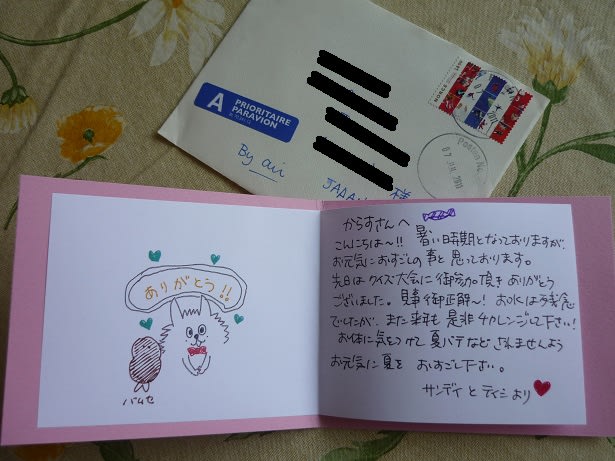 A PRIORITAIRE
PAR AVION
NORGE
07 JUL 2011
By air
JAPAN 様
ありがとう!!
バムセ
からすさんへ
こんにちは〜!! 暑い時期となっておりますが、
お元気におすごしの事と思っております。
先日はクイズ大会に御参加頂きありがとう
ございました。見事御正解〜! お水は残念
でしたが、また来年も是非チャレンジして下さい!
お体に気をつけて夏バテなどされませんよう
お元気に夏をおすごし下さい。
サンディとティニより